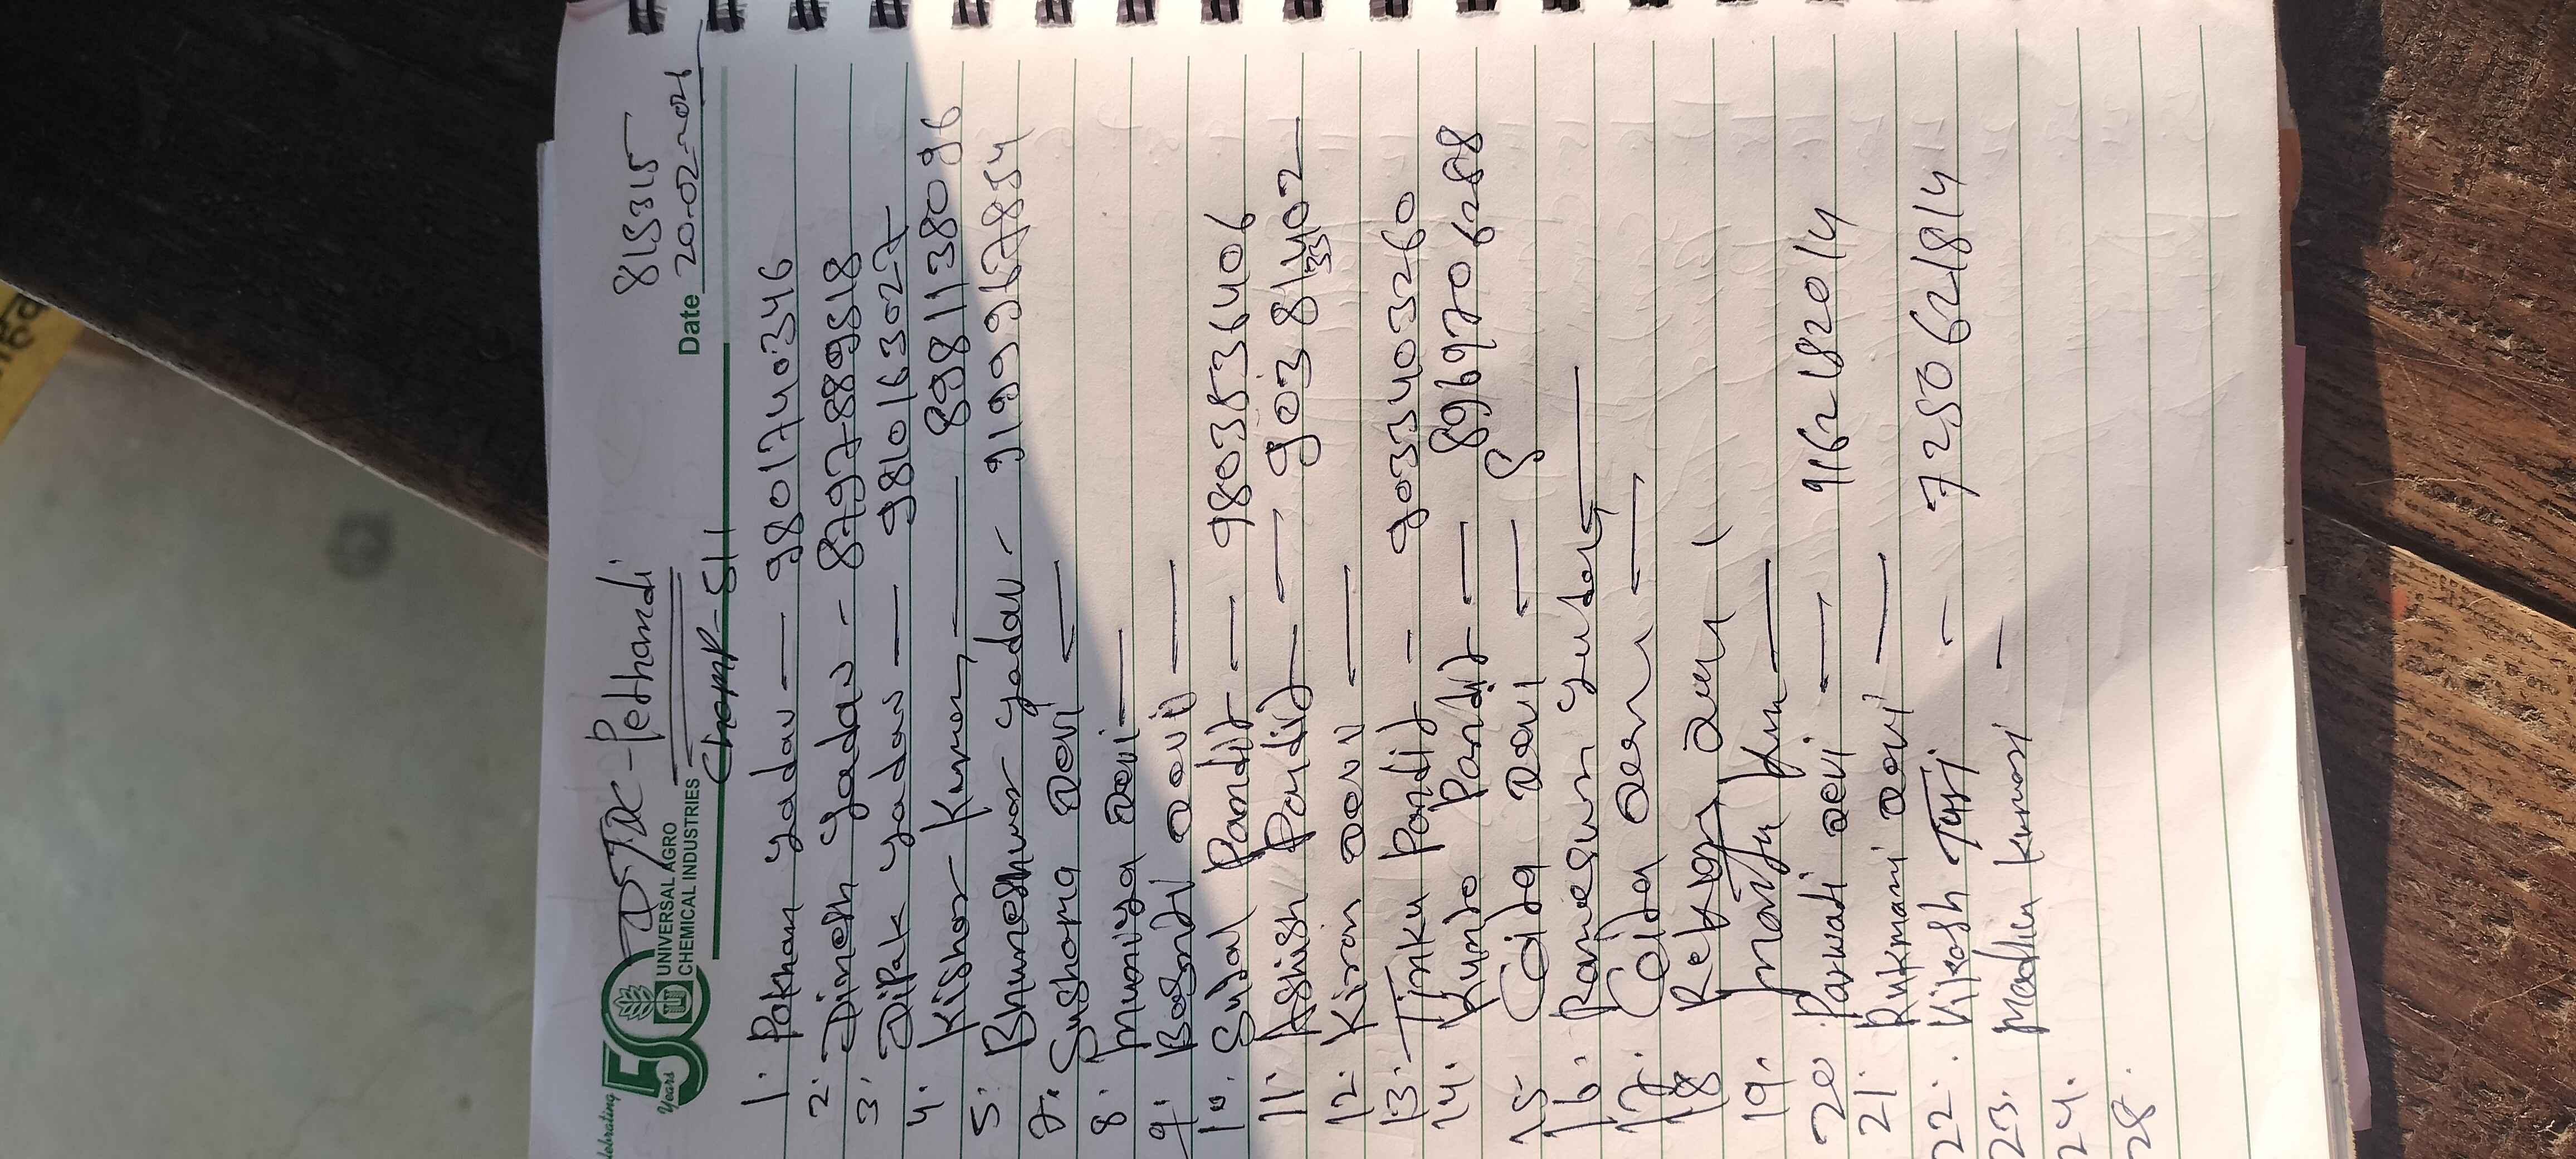 Celebrating
50 Years
UNIVERSAL AGRO
CHEMICAL INDUSTRIES
DSTDC-Pethandi
815315
Date 20-02-2026
Champ-S11
1. Pokhan yadav — 9801740346
2. Dinesh yadav - 8797889518
3. Dipak yadav — 9810163027
4. Kishor Kumar — 8981138096
5. Bhuneshwar yadav - 9199967854
7. Sushama Devi —
8. Muniya Devi —
9. Basanti Devi —
10. Sujal Pandit — 9803536406
11. Ashish Pandit — 9038133402
12. Kiran Devi —
13. Tinku Pandit — 9033403260
14. Kunjo Pandit — 8969706288
15. Devi —
16.
17.
18
19. Manju
20. Parwati Devi — 9162182014
21. Rukmani Devi —
22. Vikash Turi - 7250621814
23. Madhu Kumari -
24.
28.